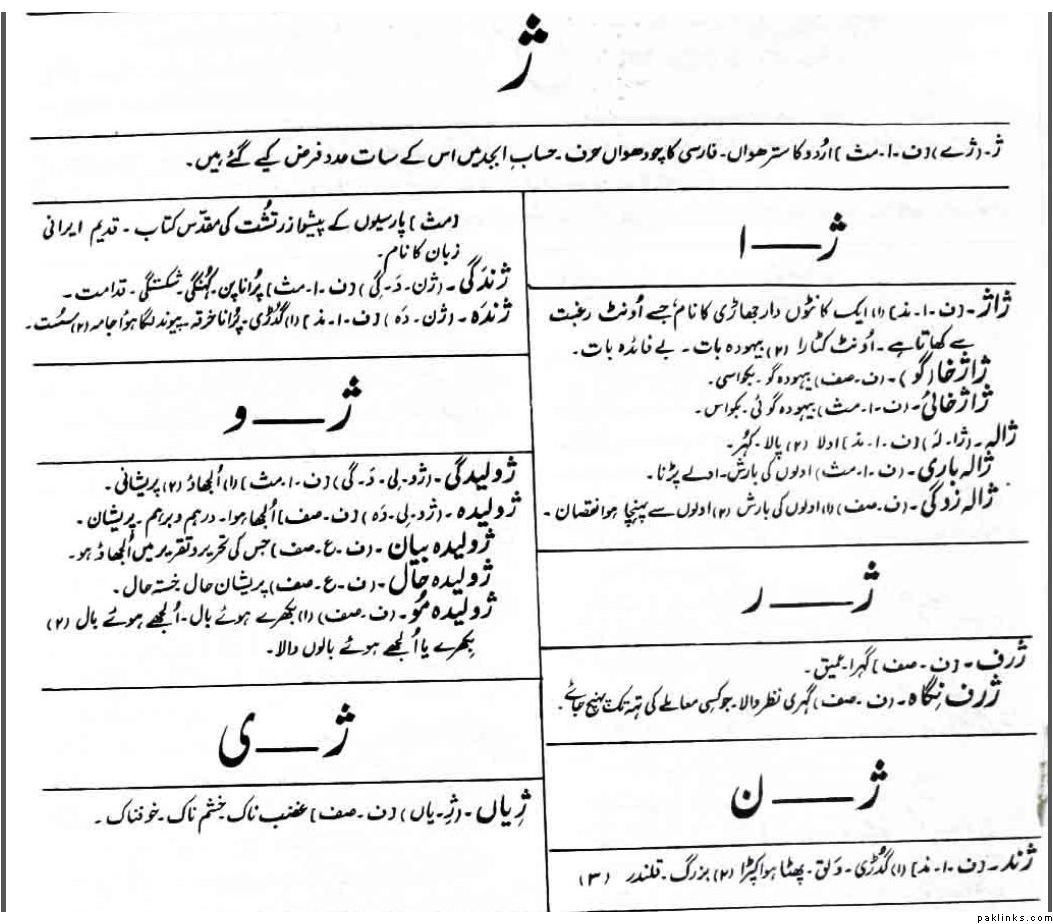 ژ
ژ۔ (ژے) [ف۔ا۔مث] اُردو کا سترھواں۔ فارسی کا چودھواں حرف۔ حسابِ ابجد میں اس کے سات عدد فرض کیے گئے ہیں۔
ژ——ا
ژاژ۔ [ف۔ا۔مذ] (۱) ایک کانٹوں دار جھاڑی کا نام جسے اُونٹ رغبت
سے کھاتا ہے۔ اُونٹ کٹارا (۲) بیہودہ بات۔ بے فائدہ بات۔
ژاژخا (گو)۔ (ف۔صف) بیہودہ گو۔ بکواسی۔
ژاژخائی۔ (ف۔ا۔مث) بیہودہ گوئی۔ بکواس۔
ژالہ۔ (ژا۔لہ) [ف۔ا۔مذ] اولا (۲) پالا۔ کہُر۔
ژالہ باری۔ (ف۔ا۔مث) اولوں کی بارش۔ اولے پڑنا۔
ژالہ زدگی۔ (ف۔صف) (۱) اولوں کی بارش (۲) اولوں سے پہنچا ہوا نقصان۔
ژ——ر
ژرف۔ [ف۔صف] گہرا۔ عمیق۔
ژرف نِگاہ۔ (ف۔صف) گہری نظر والا۔ جو کسی معاملے کی تہ تک پہنچ جائے۔
ژ——ن
ژند۔ [ف۔ا۔مذ] (۱) گُدڑی۔ دَلق۔ پھٹا ہوا کپڑا (۲) بزرگ۔ قلندر (۳)
[مث] پارسیوں کے پیشوا زرتشت کی مقدّس کتاب۔ قدیم ایرانی
زبان کا نام۔
ژندَگی۔ (ژن۔دَ۔گی) [ف۔ا۔مث] پُرانا پن۔ کُہنگی۔ شکستگی۔ قدامت۔
ژندَہ۔ (ژن۔دَہ) [ف۔ا۔مذ] (۱) گُدڑی۔ پُرانا خرقہ۔ پیوند لگا ہوا جامہ (۲) سُست۔
ژ——و
ژولیدگی۔ (ژو۔لی۔دَ۔گی) [ف۔ا۔مث] (۱) اُلجھاؤ (۲) پریشانی۔
ژولیدہ۔ (ژو۔لی۔دَہ) [ف۔صف] اُلجھا ہوا۔ درہم و برہم۔ پریشان۔
ژولیدہ بیان۔ (ف۔ع۔صف) جس کی تحریر و تقریر میں اُلجھاؤ ہو۔
ژولیدہ حال۔ (ف۔ع۔صف) پریشان حال۔ خستہ حال۔
ژولیدہ مُو۔ (ف۔صف) (۱) بکھرے ہوئے بال۔ اُلجھے ہوئے بال (۲)
بکھرے یا اُلجھے ہوئے بالوں والا۔
ژ——ی
ژِیاں۔ (ژِ۔یاں) [ف۔صف] غضب ناک۔ خشم ناک۔ خوفناک۔
paklinks.com